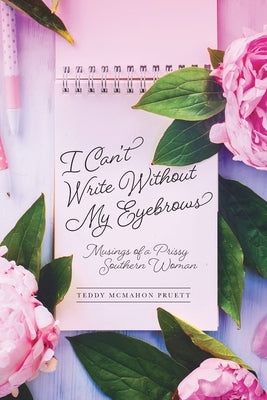 I Can't
Write Without
My Eyebrows
Musings of a Prissy
Southern Woman
TEDDY MCMAHON PRUETT